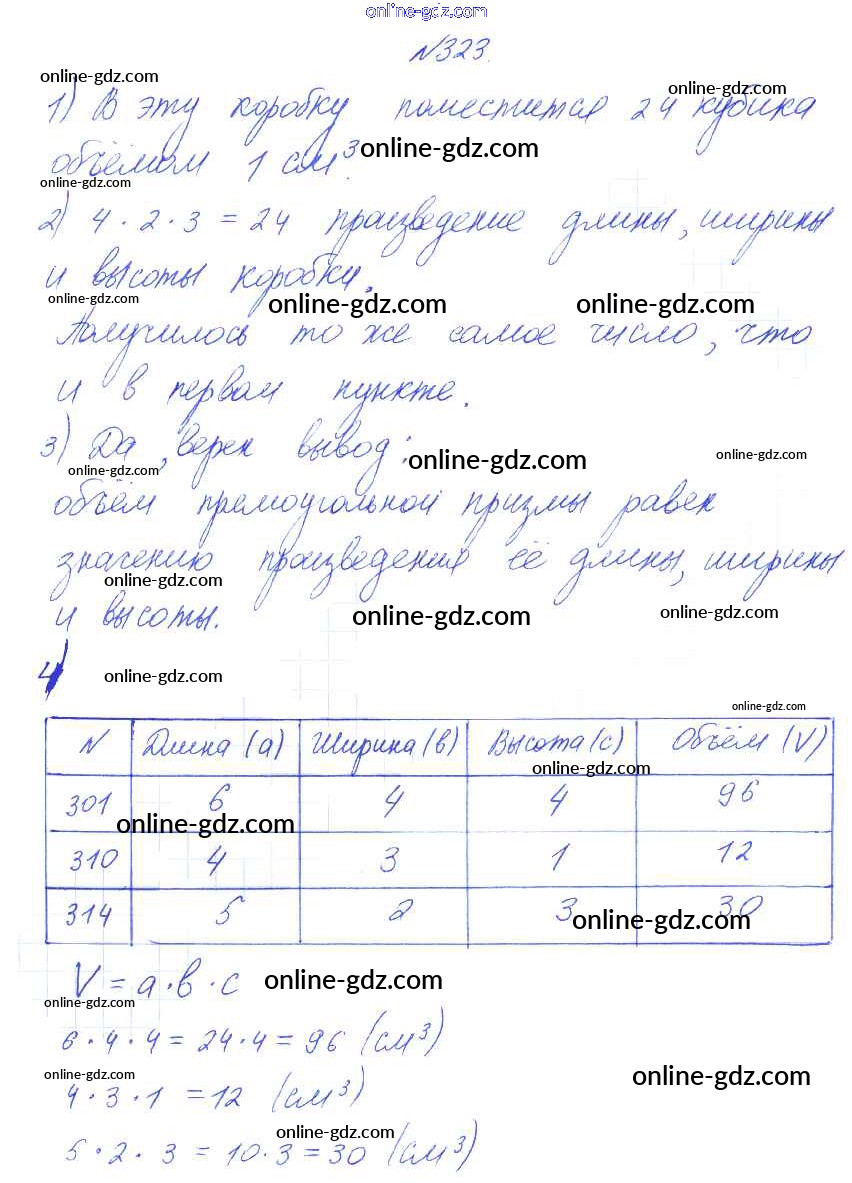 online-gdz.com
№323.
online-gdz.com online-gdz.com
1) В эту коробку поместится 24 кубика
объёмом 1 см³. online-gdz.com
online-gdz.com
2) 4 · 2 · 3 = 24 произведение длины, ширины
и высоты коробки.
online-gdz.com online-gdz.com online-gdz.com
Получилось то же самое число, что
и в первом пункте.
3) Да, верен вывод:
online-gdz.com online-gdz.com online-gdz.com
объём прямоугольной призмы равен
значению произведения её длины, ширины
online-gdz.com
и высоты. online-gdz.com online-gdz.com
4) online-gdz.com
online-gdz.com
N Длина (а) Ширина (в) Высота (с) Объём (V)
online-gdz.com
301 6 4 4 96
online-gdz.com
310 4 3 1 12
314 5 2 3 30
online-gdz.com
V = а · в · с online-gdz.com
online-gdz.com
6 · 4 · 4 = 24 · 4 = 96 (см³)
online-gdz.com online-gdz.com
4 · 3 · 1 = 12 (см³)
online-gdz.com
5 · 2 · 3 = 10 · 3 = 30 (см³)